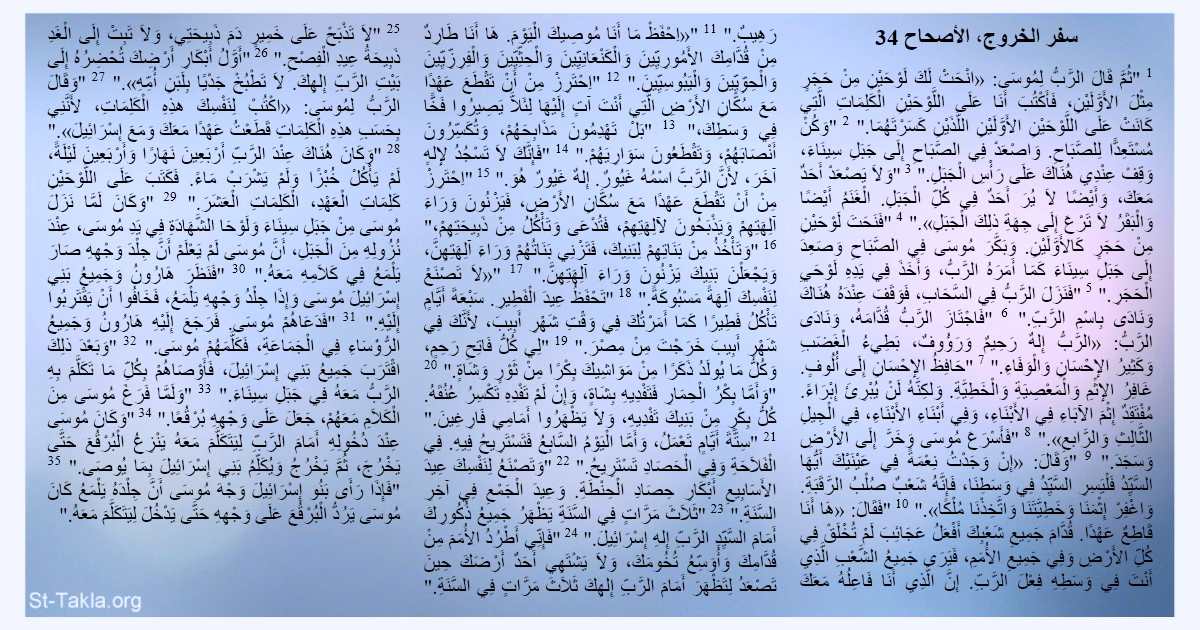 سفر الخروج، الأصحاح 34
1 "ثُمَّ قَالَ الرَّبُّ لِمُوسَى: «انْحَتْ لَكَ لَوْحَيْنِ مِنْ حَجَرٍ
مِثْلَ الأَوَّلَيْنِ، فَأَكْتُبَ أَنَا عَلَى اللَّوْحَيْنِ الْكَلِمَاتِ الَّتِي
كَانَتْ عَلَى اللَّوْحَيْنِ الأَوَّلَيْنِ اللَّذَيْنِ كَسَرْتَهُمَا." 2 "وَكُنْ
مُسْتَعِدًّا لِلصَّبَاحِ. وَاصْعَدْ فِي الصَّبَاحِ إِلَى جَبَلِ سِينَاءَ،
وَقِفْ عِنْدِي هُنَاكَ عَلَى رَأْسِ الْجَبَلِ." 3 "وَلاَ يَصْعَدْ أَحَدٌ
مَعَكَ، وَأَيْضًا لاَ يُرَ أَحَدٌ فِي كُلِّ الْجَبَلِ. الْغَنَمُ أَيْضًا
وَالْبَقَرُ لاَ تَرْعَ إِلَى جِهَةِ ذلِكَ الْجَبَلِ»." 4 "فَنَحَتَ لَوْحَيْنِ
مِنْ حَجَرٍ كَالأَوَّلَيْنِ. وَبَكَّرَ مُوسَى فِي الصَّبَاحِ وَصَعِدَ
إِلَى جَبَلِ سِينَاءَ كَمَا أَمَرَهُ الرَّبُّ، وَأَخَذَ فِي يَدِهِ لَوْحَيِ
الْحَجَرِ." 5 "فَنَزَلَ الرَّبُّ فِي السَّحَابِ، فَوَقَفَ عِنْدَهُ هُنَاكَ
وَنَادَى بِاسْمِ الرَّبِّ." 6 "فَاجْتَازَ الرَّبُّ قُدَّامَهُ، وَنَادَى
الرَّبُّ: «الرَّبُّ إِلهٌ رَحِيمٌ وَرَؤُوفٌ، بَطِيءُ الْغَضَبِ
وَكَثِيرُ الإِحْسَانِ وَالْوَفَاءِ." 7 "حَافِظُ الإِحْسَانِ إِلَى أُلُوفٍ.
غَافِرُ الإِثْمِ وَالْمَعْصِيَةِ وَالْخَطِيَّةِ. وَلكِنَّهُ لَنْ يُبْرِئَ إِبْرَاءً.
مُفْتَقِدٌ إِثْمَ الآبَاءِ فِي الأَبْنَاءِ، وَفِي أَبْنَاءِ الأَبْنَاءِ، فِي الْجِيلِ
الثَّالِثِ وَالرَّابعِ»." 8 "فَأَسْرَعَ مُوسَى وَخَرَّ إِلَى الأَرْضِ
وَسَجَدَ." 9 "وَقَالَ: «إِنْ وَجَدْتُ نِعْمَةً فِي عَيْنَيْكَ أَيُّهَا
السَّيِّدُ فَلْيَسِرِ السَّيِّدُ فِي وَسَطِنَا، فَإِنَّهُ شَعْبٌ صُلْبُ الرَّقَبَةِ.
وَاغْفِرْ إِثْمَنَا وَخَطِيَّتَنَا وَاتَّخِذْنَا مُلْكًا»." 10 "فَقَالَ: «هَا أَنَا
قَاطِعٌ عَهْدًا. قُدَّامَ جَمِيعِ شَعْبِكَ أَفْعَلُ عَجَائِبَ لَمْ تُخْلَقْ فِي
كُلِّ الأَرْضِ وَفِي جَمِيعِ الأُمَمِ، فَيَرَى جَمِيعُ الشَّعْبِ الَّذِي
أَنْتَ فِي وَسَطِهِ فِعْلَ الرَّبِّ. إِنَّ الَّذِي أَنَا فَاعِلُهُ مَعَكَ
رَهِيبٌ." 11 "«اِحْفَظْ مَا أَنَا مُوصِيكَ الْيَوْمَ. هَا أَنَا طَارِدٌ
مِنْ قُدَّامِكَ الأَمُورِيِّينَ وَالْكَنْعَانِيِّينَ وَالْحِثِّيِّينَ وَالْفِرِزِّيِّينَ
وَالْحِوِّيِّينَ وَالْيَبُوسِيِّينَ." 12 "اِحْتَرِزْ مِنْ أَنْ تَقْطَعَ عَهْدًا
مَعَ سُكَّانِ الأَرْضِ الَّتِي أَنْتَ آتٍ إِلَيْهَا لِئَلاَّ يَصِيرُوا فَخًّا
فِي وَسَطِكَ،" 13 "بَلْ تَهْدِمُونَ مَذَابِحَهُمْ، وَتُكَسِّرُونَ
أَنْصَابَهُمْ، وَتَقْطَعُونَ سَوَارِيَهُمْ." 14 "فَإِنَّكَ لاَ تَسْجُدُ لإِلهٍ
آخَرَ، لأَنَّ الرَّبَّ اسْمُهُ غَيُورٌ. إِلهٌ غَيُورٌ هُوَ." 15 "اِحْتَرِزْ
مِنْ أَنْ تَقْطَعَ عَهْدًا مَعَ سُكَّانِ الأَرْضِ، فَيَزْنُونَ وَرَاءَ
آلِهَتِهِمْ وَيَذْبَحُونَ لآلِهَتِهِمْ، فَتُدْعَى وَتَأْكُلُ مِنْ ذَبِيحَتِهِمْ،"
16 "وَتَأْخُذُ مِنْ بَنَاتِهِمْ لِبَنِيكَ، فَتَزْنِي بَنَاتُهُمْ وَرَاءَ آلِهَتِهِنَّ،
وَيَجْعَلْنَ بَنِيكَ يَزْنُونَ وَرَاءَ آلِهَتِهِنَّ." 17 "«لاَ تَصْنَعْ
لِنَفْسِكَ آلِهَةً مَسْبُوكَةً." 18 "تَحْفَظُ عِيدَ الْفَطِيرِ. سَبْعَةَ أَيَّامٍ
تَأْكُلُ فَطِيرًا كَمَا أَمَرْتُكَ فِي وَقْتِ شَهْرِ أَبِيبَ، لأَنَّكَ فِي
شَهْرِ أَبِيبَ خَرَجْتَ مِنْ مِصْرَ." 19 "لِي كُلُّ فَاتِحِ رَحِمٍ،
وَكُلُّ مَا يُولَدُ ذَكَرًا مِنْ مَوَاشِيكَ بِكْرًا مِنْ ثَوْرٍ وَشَاةٍ." 20
"وَأَمَّا بِكْرُ الْحِمَارِ فَتَفْدِيهِ بِشَاةٍ، وَإِنْ لَمْ تَفْدِهِ تَكْسِرُ عُنُقَهُ.
كُلُّ بِكْرٍ مِنْ بَنِيكَ تَفْدِيهِ، وَلاَ يَظْهَرُوا أَمَامِي فَارِغِينَ."
21 "سِتَّةَ أَيَّامٍ تَعْمَلُ، وَأَمَّا الْيَوْمُ السَّابعُ فَتَسْتَرِيحُ فِيهِ. فِي
الْفَلاَحَةِ وَفِي الْحَصَادِ تَسْتَرِيحُ." 22 "وَتَصْنَعُ لِنَفْسِكَ عِيدَ
الأَسَابِيعِ أَبْكَارِ حِصَادِ الْحِنْطَةِ. وَعِيدَ الْجَمْعِ فِي آخِرِ
السَّنَةِ." 23 "ثَلاَثَ مَرَّاتٍ فِي السَّنَةِ يَظْهَرُ جَمِيعُ ذُكُورِكَ
أَمَامَ السَّيِّدِ الرَّبِّ إِلهِ إِسْرَائِيلَ." 24 "فَإِنِّي أَطْرُدُ الأُمَمَ مِنْ
قُدَّامِكَ وَأُوَسِّعُ تُخُومَكَ، وَلاَ يَشْتَهِي أَحَدٌ أَرْضَكَ حِينَ
تَصْعَدُ لِتَظْهَرَ أَمَامَ الرَّبِّ إِلهِكَ ثَلاَثَ مَرَّاتٍ فِي السَّنَةِ."
25 "لاَ تَذْبَحْ عَلَى خَمِيرٍ دَمَ ذَبِيحَتِي، وَلاَ تَبِتْ إِلَى الْغَدِ
ذَبِيحَةُ عِيدِ الْفِصْحِ." 26 "أَوَّلُ أَبْكَارِ أَرْضِكَ تُحْضِرُهُ إِلَى
بَيْتِ الرَّبِّ إِلهِكَ. لاَ تَطْبُخْ جَدْيًا بِلَبَنِ أُمِّهِ»." 27 "وَقَالَ
الرَّبُّ لِمُوسَى: «اكْتُبْ لِنَفْسِكَ هذِهِ الْكَلِمَاتِ، لأَنَّنِي
بِحَسَبِ هذِهِ الْكَلِمَاتِ قَطَعْتُ عَهْدًا مَعَكَ وَمَعَ إِسْرَائِيلَ»."
28 "وَكَانَ هُنَاكَ عِنْدَ الرَّبِّ أَرْبَعِينَ نَهَارًا وَأَرْبَعِينَ لَيْلَةً،
لَمْ يَأْكُلْ خُبْزًا وَلَمْ يَشْرَبْ مَاءً. فَكَتَبَ عَلَى اللَّوْحَيْنِ
كَلِمَاتِ الْعَهْدِ، الْكَلِمَاتِ الْعَشَرَ." 29 "وَكَانَ لَمَّا نَزَلَ
مُوسَى مِنْ جَبَلِ سِينَاءَ وَلَوْحَا الشَّهَادَةِ فِي يَدِ مُوسَى، عِنْدَ
نُزُولِهِ مِنَ الْجَبَلِ، أَنَّ مُوسَى لَمْ يَعْلَمْ أَنَّ جِلْدَ وَجْهِهِ صَارَ
يَلْمَعُ فِي كَلاَمِهِ مَعَهُ." 30 "فَنَظَرَ هَارُونُ وَجَمِيعُ بَنِي
إِسْرَائِيلَ مُوسَى وَإِذَا جِلْدُ وَجْهِهِ يَلْمَعُ، فَخَافُوا أَنْ يَقْتَرِبُوا
إِلَيْهِ." 31 "فَدَعَاهُمْ مُوسَى. فَرَجَعَ إِلَيْهِ هَارُونُ وَجَمِيعُ
الرُّؤَسَاءِ فِي الْجَمَاعَةِ، فَكَلَّمَهُمْ مُوسَى." 32 "وَبَعْدَ ذلِكَ
اقْتَرَبَ جَمِيعُ بَنِي إِسْرَائِيلَ، فَأَوْصَاهُمْ بِكُلِّ مَا تَكَلَّمَ بِهِ
الرَّبُّ مَعَهُ فِي جَبَلِ سِينَاءَ." 33 "وَلَمَّا فَرَغَ مُوسَى مِنَ
الْكَلاَمِ مَعَهُمْ، جَعَلَ عَلَى وَجْهِهِ بُرْقُعًا." 34 "وَكَانَ مُوسَى
عِنْدَ دُخُولِهِ أَمَامَ الرَّبِّ لِيَتَكَلَّمَ مَعَهُ يَنْزِعُ الْبُرْقُعَ حَتَّى
يَخْرُجَ، ثُمَّ يَخْرُجُ وَيُكَلِّمُ بَنِي إِسْرَائِيلَ بِمَا يُوصَى." 35
"فَإِذَا رَأَى بَنُو إِسْرَائِيلَ وَجْهَ مُوسَى أَنَّ جِلْدَهُ يَلْمَعُ كَانَ
مُوسَى يَرُدُّ الْبُرْقُعَ عَلَى وَجْهِهِ حَتَّى يَدْخُلَ لِيَتَكَلَّمَ مَعَهُ."
St-Takla.org